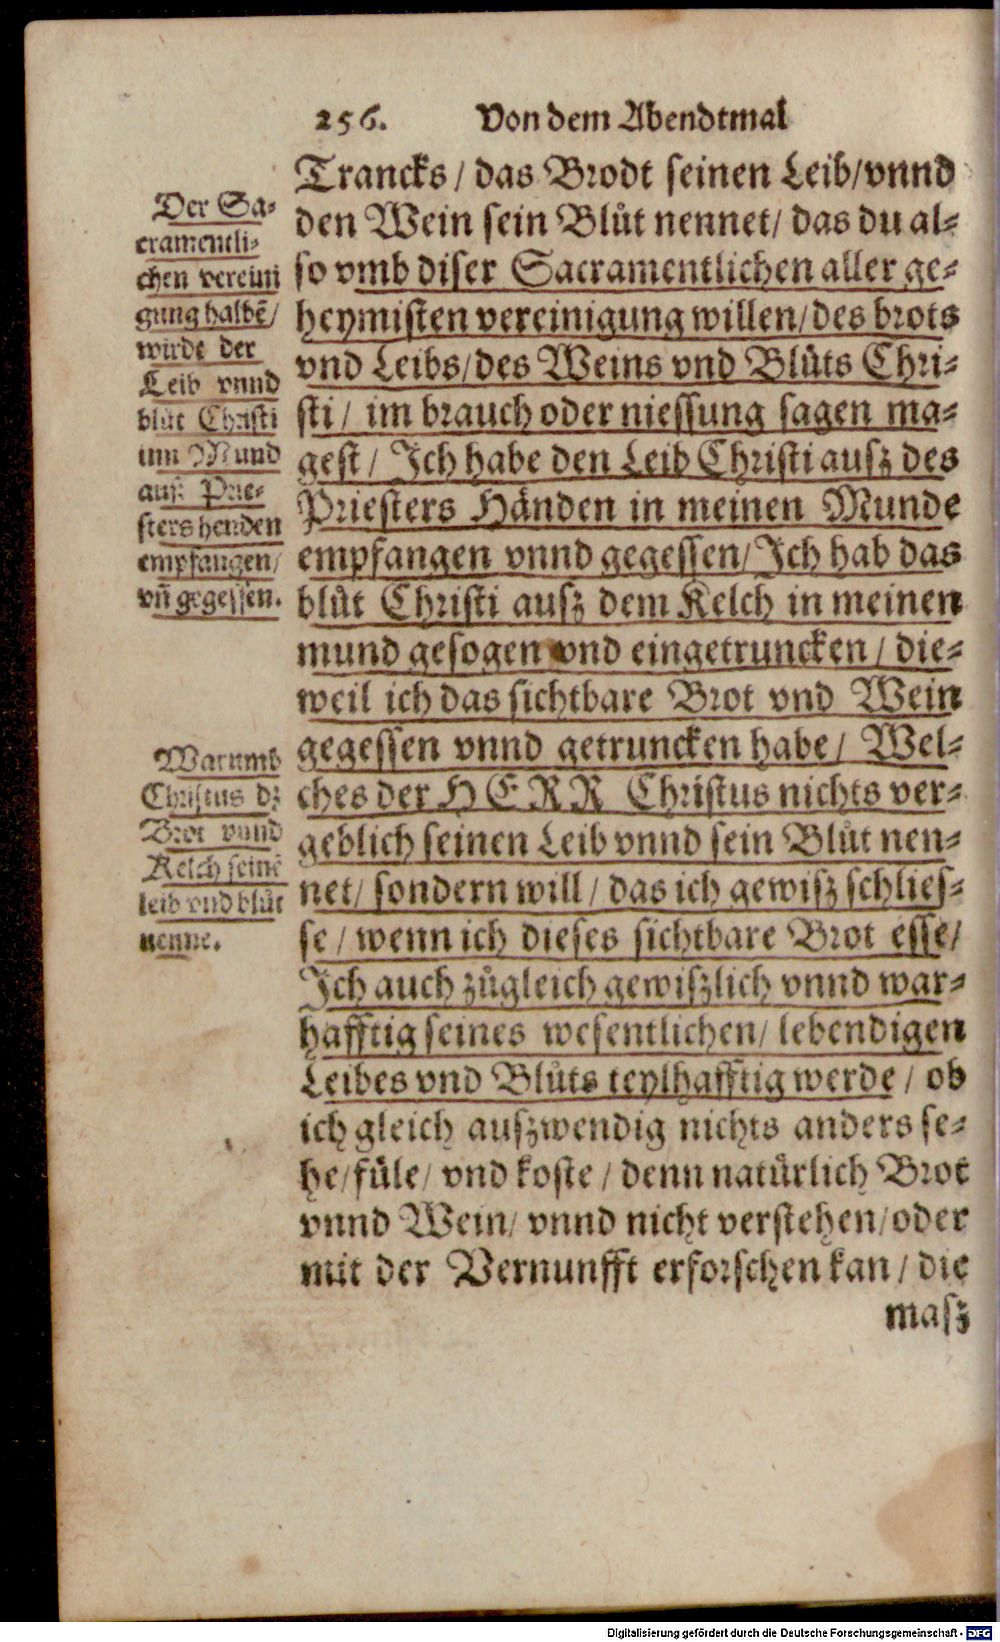 256. Von dem Abendtmal
Trancks / das Brodt seinen Leib/vnnd
den Wein sein Blůt nennet/ das du al-
so vmb diser Sacramentlichen aller ge-
heymisten vereinigung willen/des brots
vnd Leibs/des Weins vnd Blůts Chri-
sti / im brauch oder niessung sagen ma-
gest / Ich habe den Leib Christi ausz des
Priesters Händen in meinen Munde
empfangen vnnd gegessen/Ich hab das
blůt Christi ausz dem Kelch in meinen
mund gesogen vnd eingetruncken / die-
weil ich das sichtbare Brot vnd Wein
gegessen vnnd getruncken habe / Wel-
ches der HERR Christus nichts ver-
geblich seinen Leib vnnd sein Blůt nen-
net/ sondern will / das ich gewisz schlies-
se / wenn ich dieses sichtbare Brot esse/
Ich auch zůgleich gewiszlich vnnd war-
hafftig seines wesentlichen/ lebendigen
Leibes vnd Blůts teylhafftig werde / ob
ich gleich auszwendig nichts anders se-
he/füle/ vnd koste / denn natürlich Brot
vnnd Wein/ vnnd nicht verstehen/oder
mit der Vernunfft erforschen kan / die
masz
Der Sa-
cramentli-
chen vereini
gung halbē/
wirde der
Leib vnnd
blůt Christi
inn Mund
ausz Prie-
sters henden
empfangen/
vn̄ gegessen.
Warumb
Christus dz
Brot vnnd
Kelch seinē
leib vnd blůt
nenne.
Digitalisierung gefördert durch die Deutsche Forschungsgemeinschaft - DFG